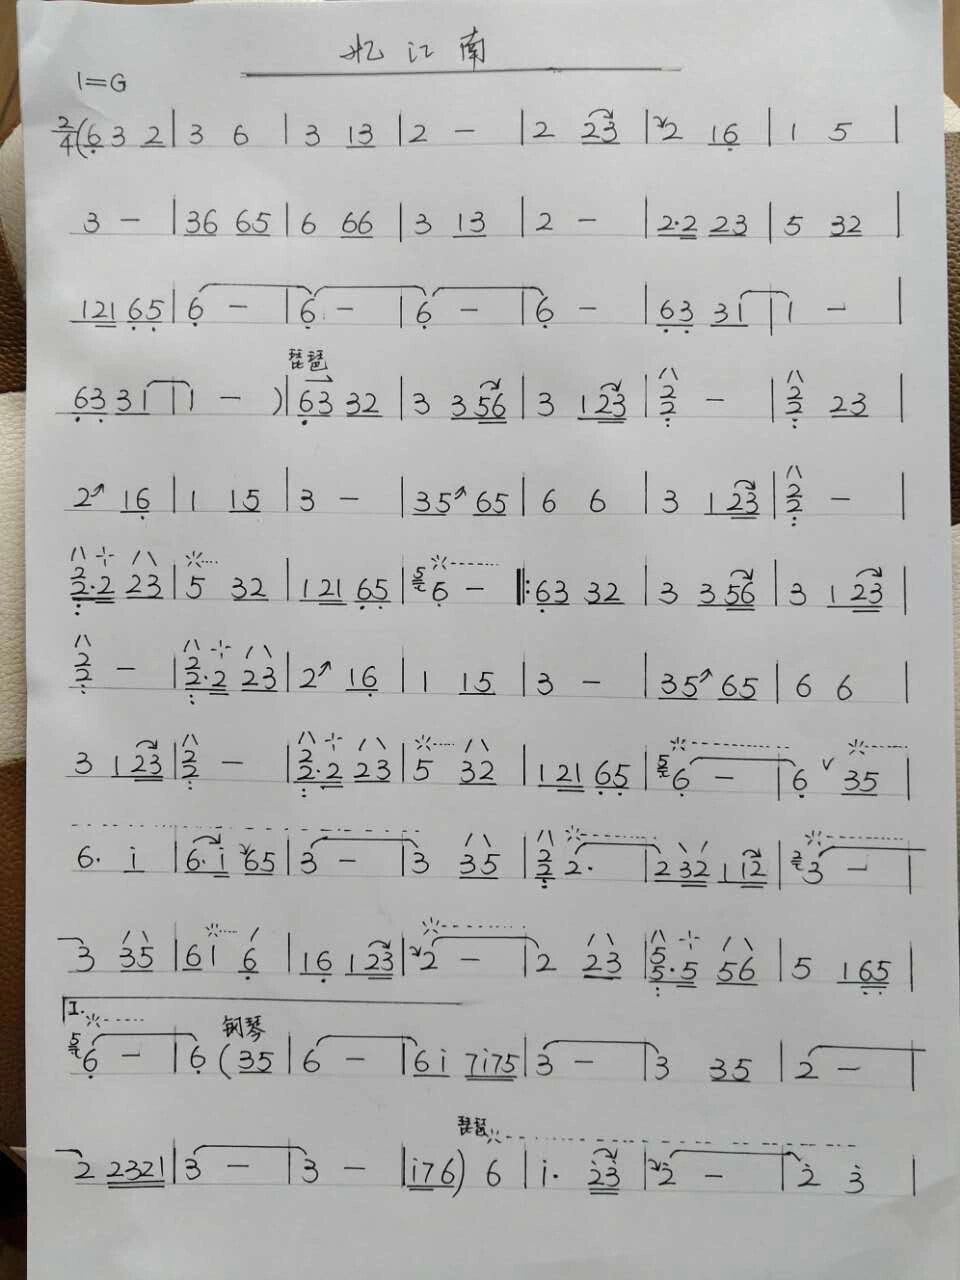 忆江南
1=G
2/4 (6 3 2 | 3 6 | 3 13 | 2 - | 2 23 | 2 16 | 1 5 |
3 - | 36 65 | 6 66 | 3 13 | 2 - | 2·2 23 | 5 32 |
121 65 | 6 - | 6 - | 6 - | 6 - | 63 31 | 1 - |
琵琶
63 31 | 1 - ) | 63 32 | 3 3 56 | 3 1 23 | 2/2 - | 2/2 23 |
2 16 | 1 15 | 3 - | 35 65 | 6 6 | 3 1 23 | 2/2 - |
2/2·2 23 | 5 32 | 121 65 | 5 6 - ‖: 63 32 | 3 3 56 | 3 1 23 |
2/2 - | 2/2·2 23 | 2 16 | 1 15 | 3 - | 35 65 | 6 6 |
3 1 23 | 2/2 - | 2/2·2 23 | 5 32 | 121 65 | 5 6 - | 6 ∨ 35 |
6· i | 6·i 65 | 3 - | 3 35 | 2/2 2· | 2 32 1 12 | 2 3 - |
3 35 | 61 6 | 16 1 23 | 2 - | 2 23 | 5/5·5 56 | 5 165 |
I.
钢琴
5 6 - | 6 (35 | 6 - | 6i 7i75 | 3 - | 3 35 | 2 - |
琵琶
2 2321 | 3 - | 3 - | i76) 6 | i· 23 | 2 - | 2 3 |